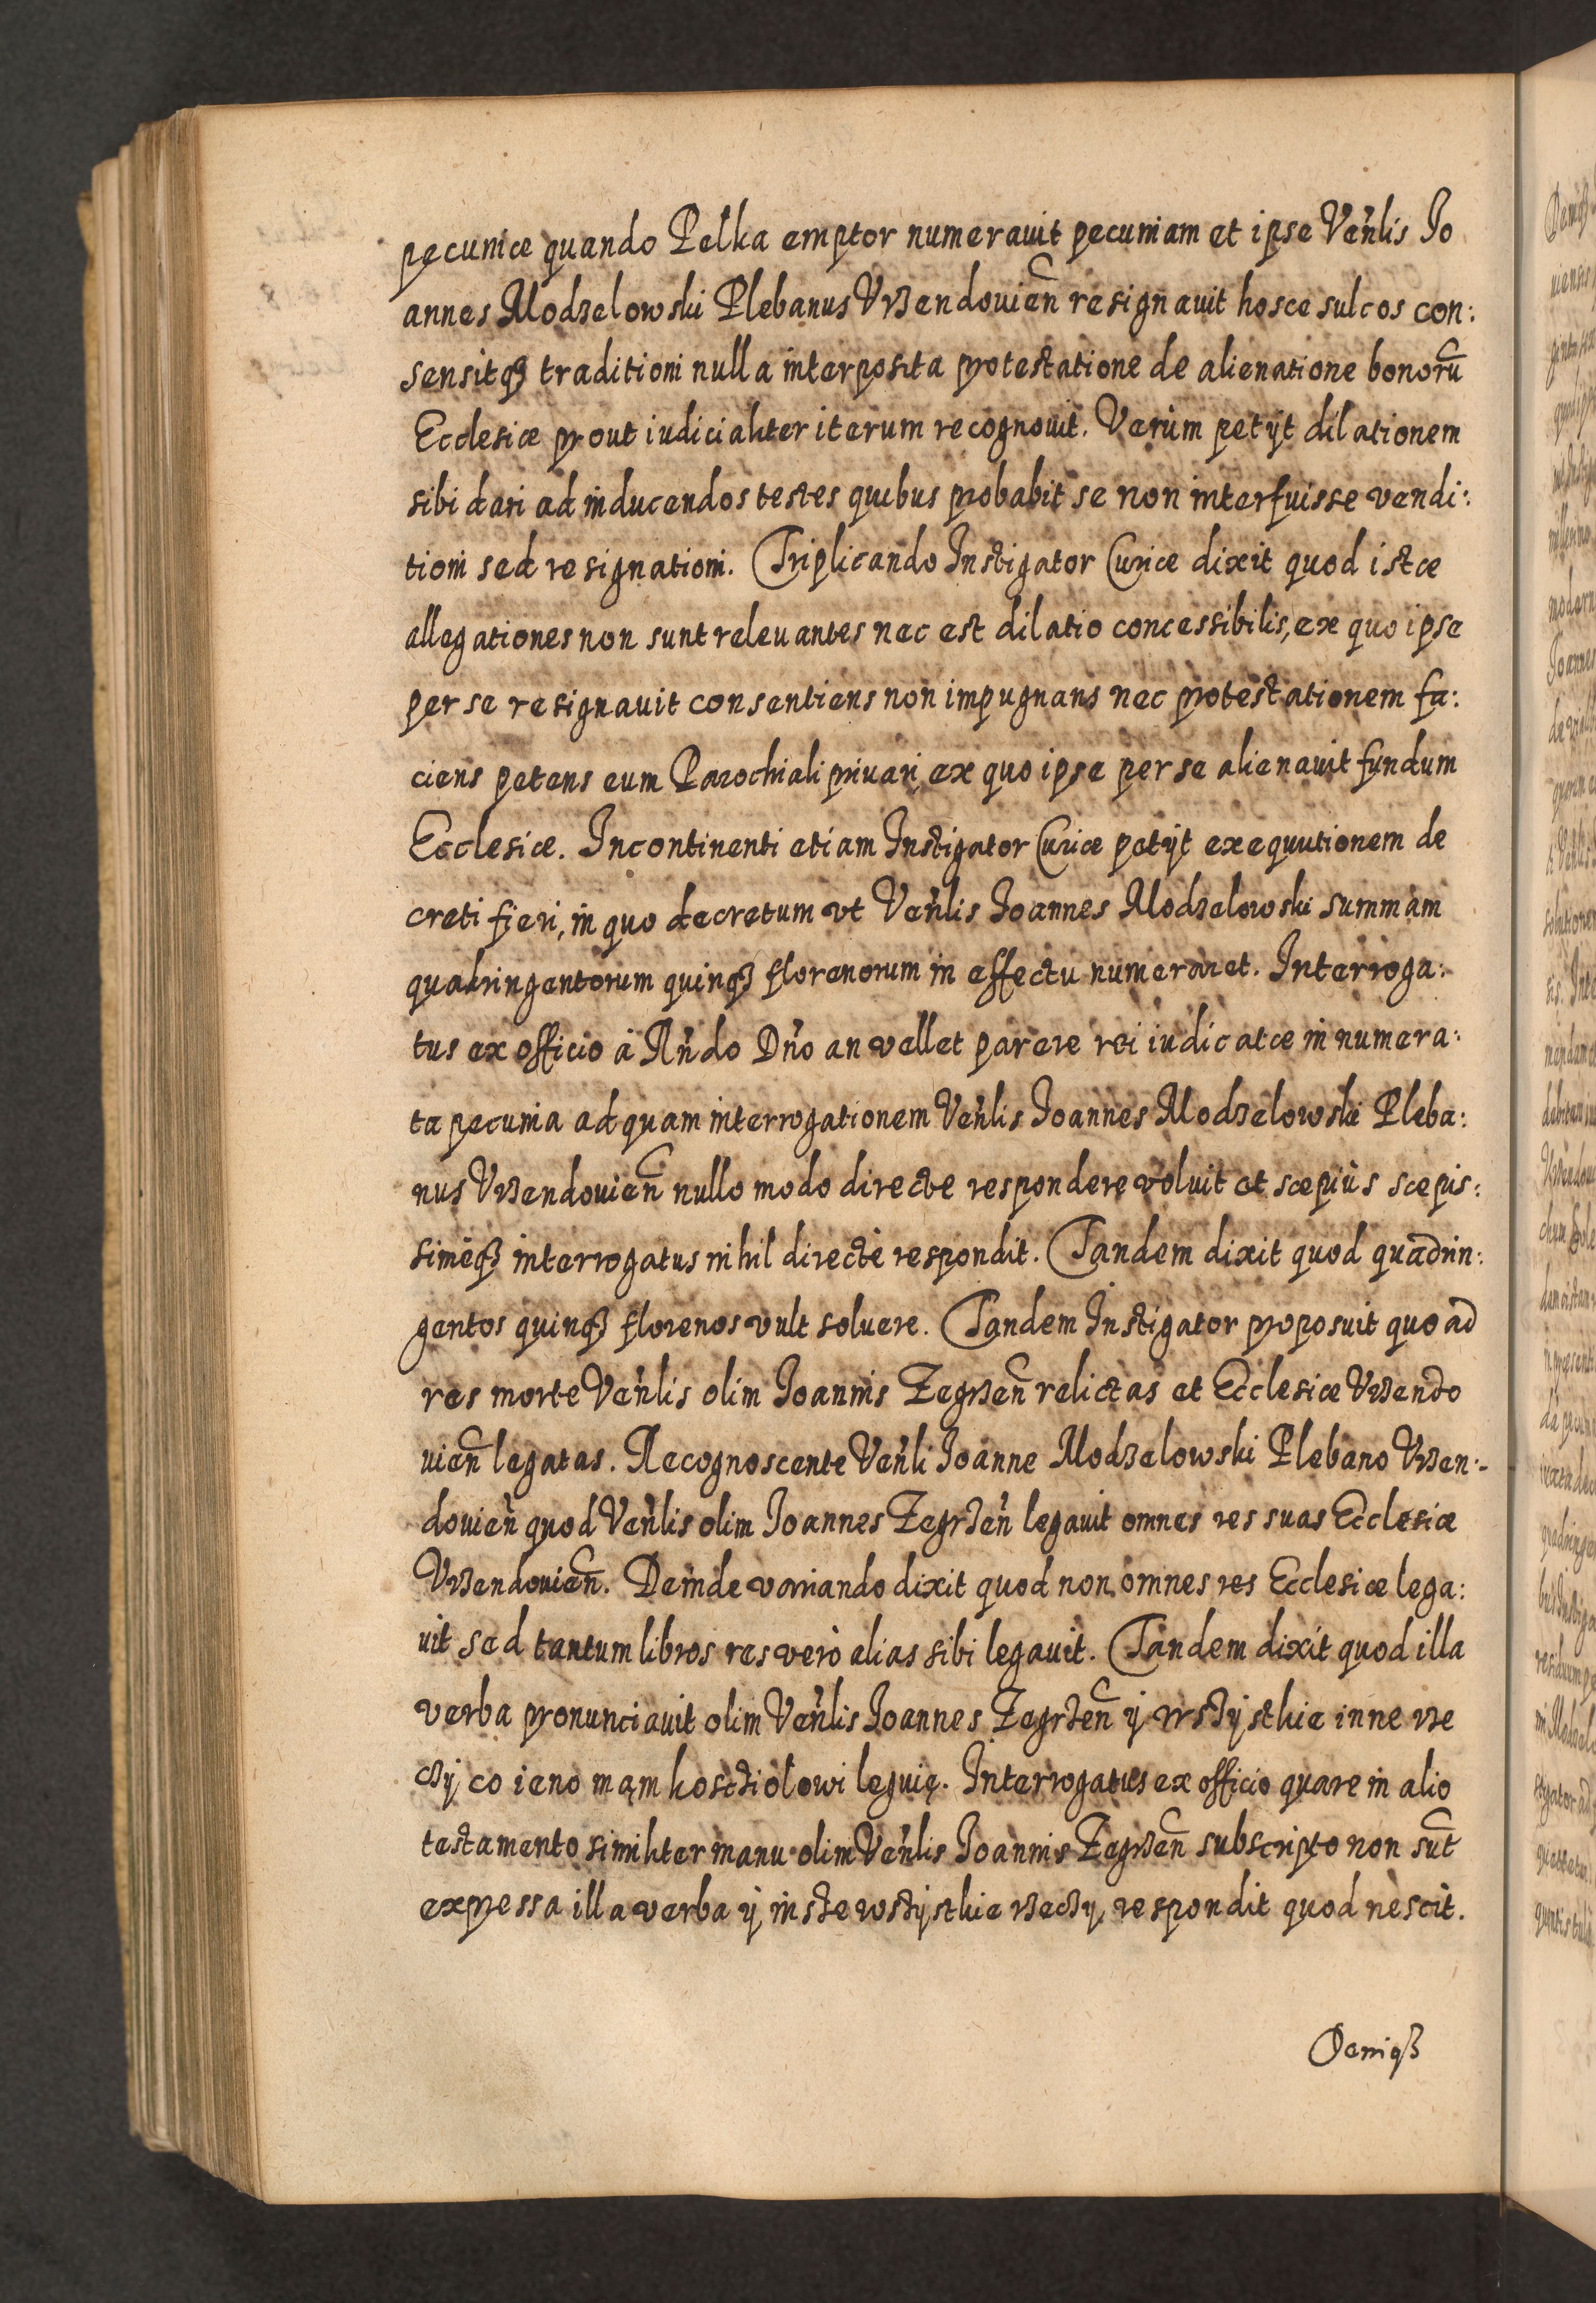 pecuniæ quando Pelka emptor numerauit pecuniam et ipse Venlis Jo
annes Modzelowski Plebanus Vrzendouien resignauit hosce sulcos con:
sensitqꝫ traditioni nulla interposita protestatione de alienatione bonorū
Ecclesiæ prout iudicialiter iterum recognouit. Verùm petijt dilationem
sibi dari ad inducendos testes quibus probabit se non interfuisse vendi:
tioni sed resignationi. Triplicando Instigator Curiæ dixit quod istæ
allegationes non sunt releuantes nec est dilatio concessibilis, ex quo ipse
per se resignauit consentiens non impugnans nec protestationem fa:
ciens petens eum Parochiali priuari, ex quo ipse per se alienauit fundum
Ecclesiæ. Incontinenti etiam Instigator Curiæ petijt exequutionem de
creti fieri, in quo decretum vt Venlis Joannes Modzelowski summam
quadringentorum quinqꝫ florenorum in effectu numeraret. Interroga:
tus ex officio à Rńdo Dńo an vellet parere rei iudicatæ in numera:
ta pecunia ad quam interrogationem Venlis Joannes Modzelowski Pleba:
nus Vrzendouien nullo modo directe respondere voluit et sæpiùs sæpis:
simèqꝫ interrogatus nihil directè respondit. Tandem dixit quod quadrin:
gentos quinqꝫ florenos vult soluere. Tandem Instigator proposuit quo ad
res morte Venlis olim Joannis Zegrzen relictas et Ecclesiæ Vrzendo
uien legatas. Recognoscente Venli Joanne Modzelowski Plebano Vrzen:
douien quod Venlis olim Joannes Zegrzen legauit omnes res suas Ecclesiæ
Vrzendouien. Deinde variando dixit quod non omnes res Ecclesiæ lega:
uit sed tantum libros res verò alias sibi legauit. Tandem dixit quod illa
verba pronunciauit olim Venlis Joannes Zegrzen ÿ wszÿsthie inne rze
czÿ co ieno mąm koscziolowi leguię. Interrogatus ex officio quare in alio
testamento similiter manu olim Venlis Joannis Zegrzen subscripto non sūt
expressa illa verba ÿ insze wszÿsthie rzeczÿ, respondit quod nescit.
Deniqꝫ